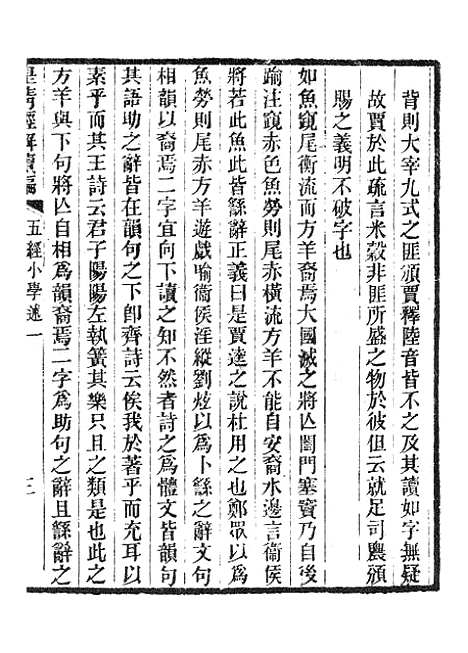 背則大宰九式之匪頒賈釋陸音皆不之及其讀如字無疑
故賈於此疏言米穀非匪所盛之物於彼但云就足司農頒
賜之義明不破字也
如魚竀尾衡流而方羊裔焉大國滅之將亾闔門塞竇乃自後
踰注竀赤色魚勞則尾赤橫流方羊不能自安裔水邊言衞侯
將若此魚此皆繇辭正義曰是賈逵之說杜用之也鄭眾以爲
魚勞則尾赤方羊遊戲喻衞侯淫縱劉炫以爲卜繇之辭文句
相韻以裔焉二字宜向下讀之知不然者詩之爲體文皆韻句
其語助之辭皆在韻句之下卽齊詩云俟我於著乎而充耳以
素乎而其王詩云君子陽陽左執簧其樂只且之類是也此之
方羊與下句將亾自相爲韻裔焉二字爲助句之辭且繇辭之
皇淸經解續編
五經小學述一
三